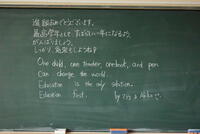 進級おめでとうございます。
最高学年として すばらしい一年になるよう、
がんばりましょう。
しっかり 勉強をしようね!!
One child, one teacher, one book, and pen
Can change the world.
Education is the only solution.
Education first.